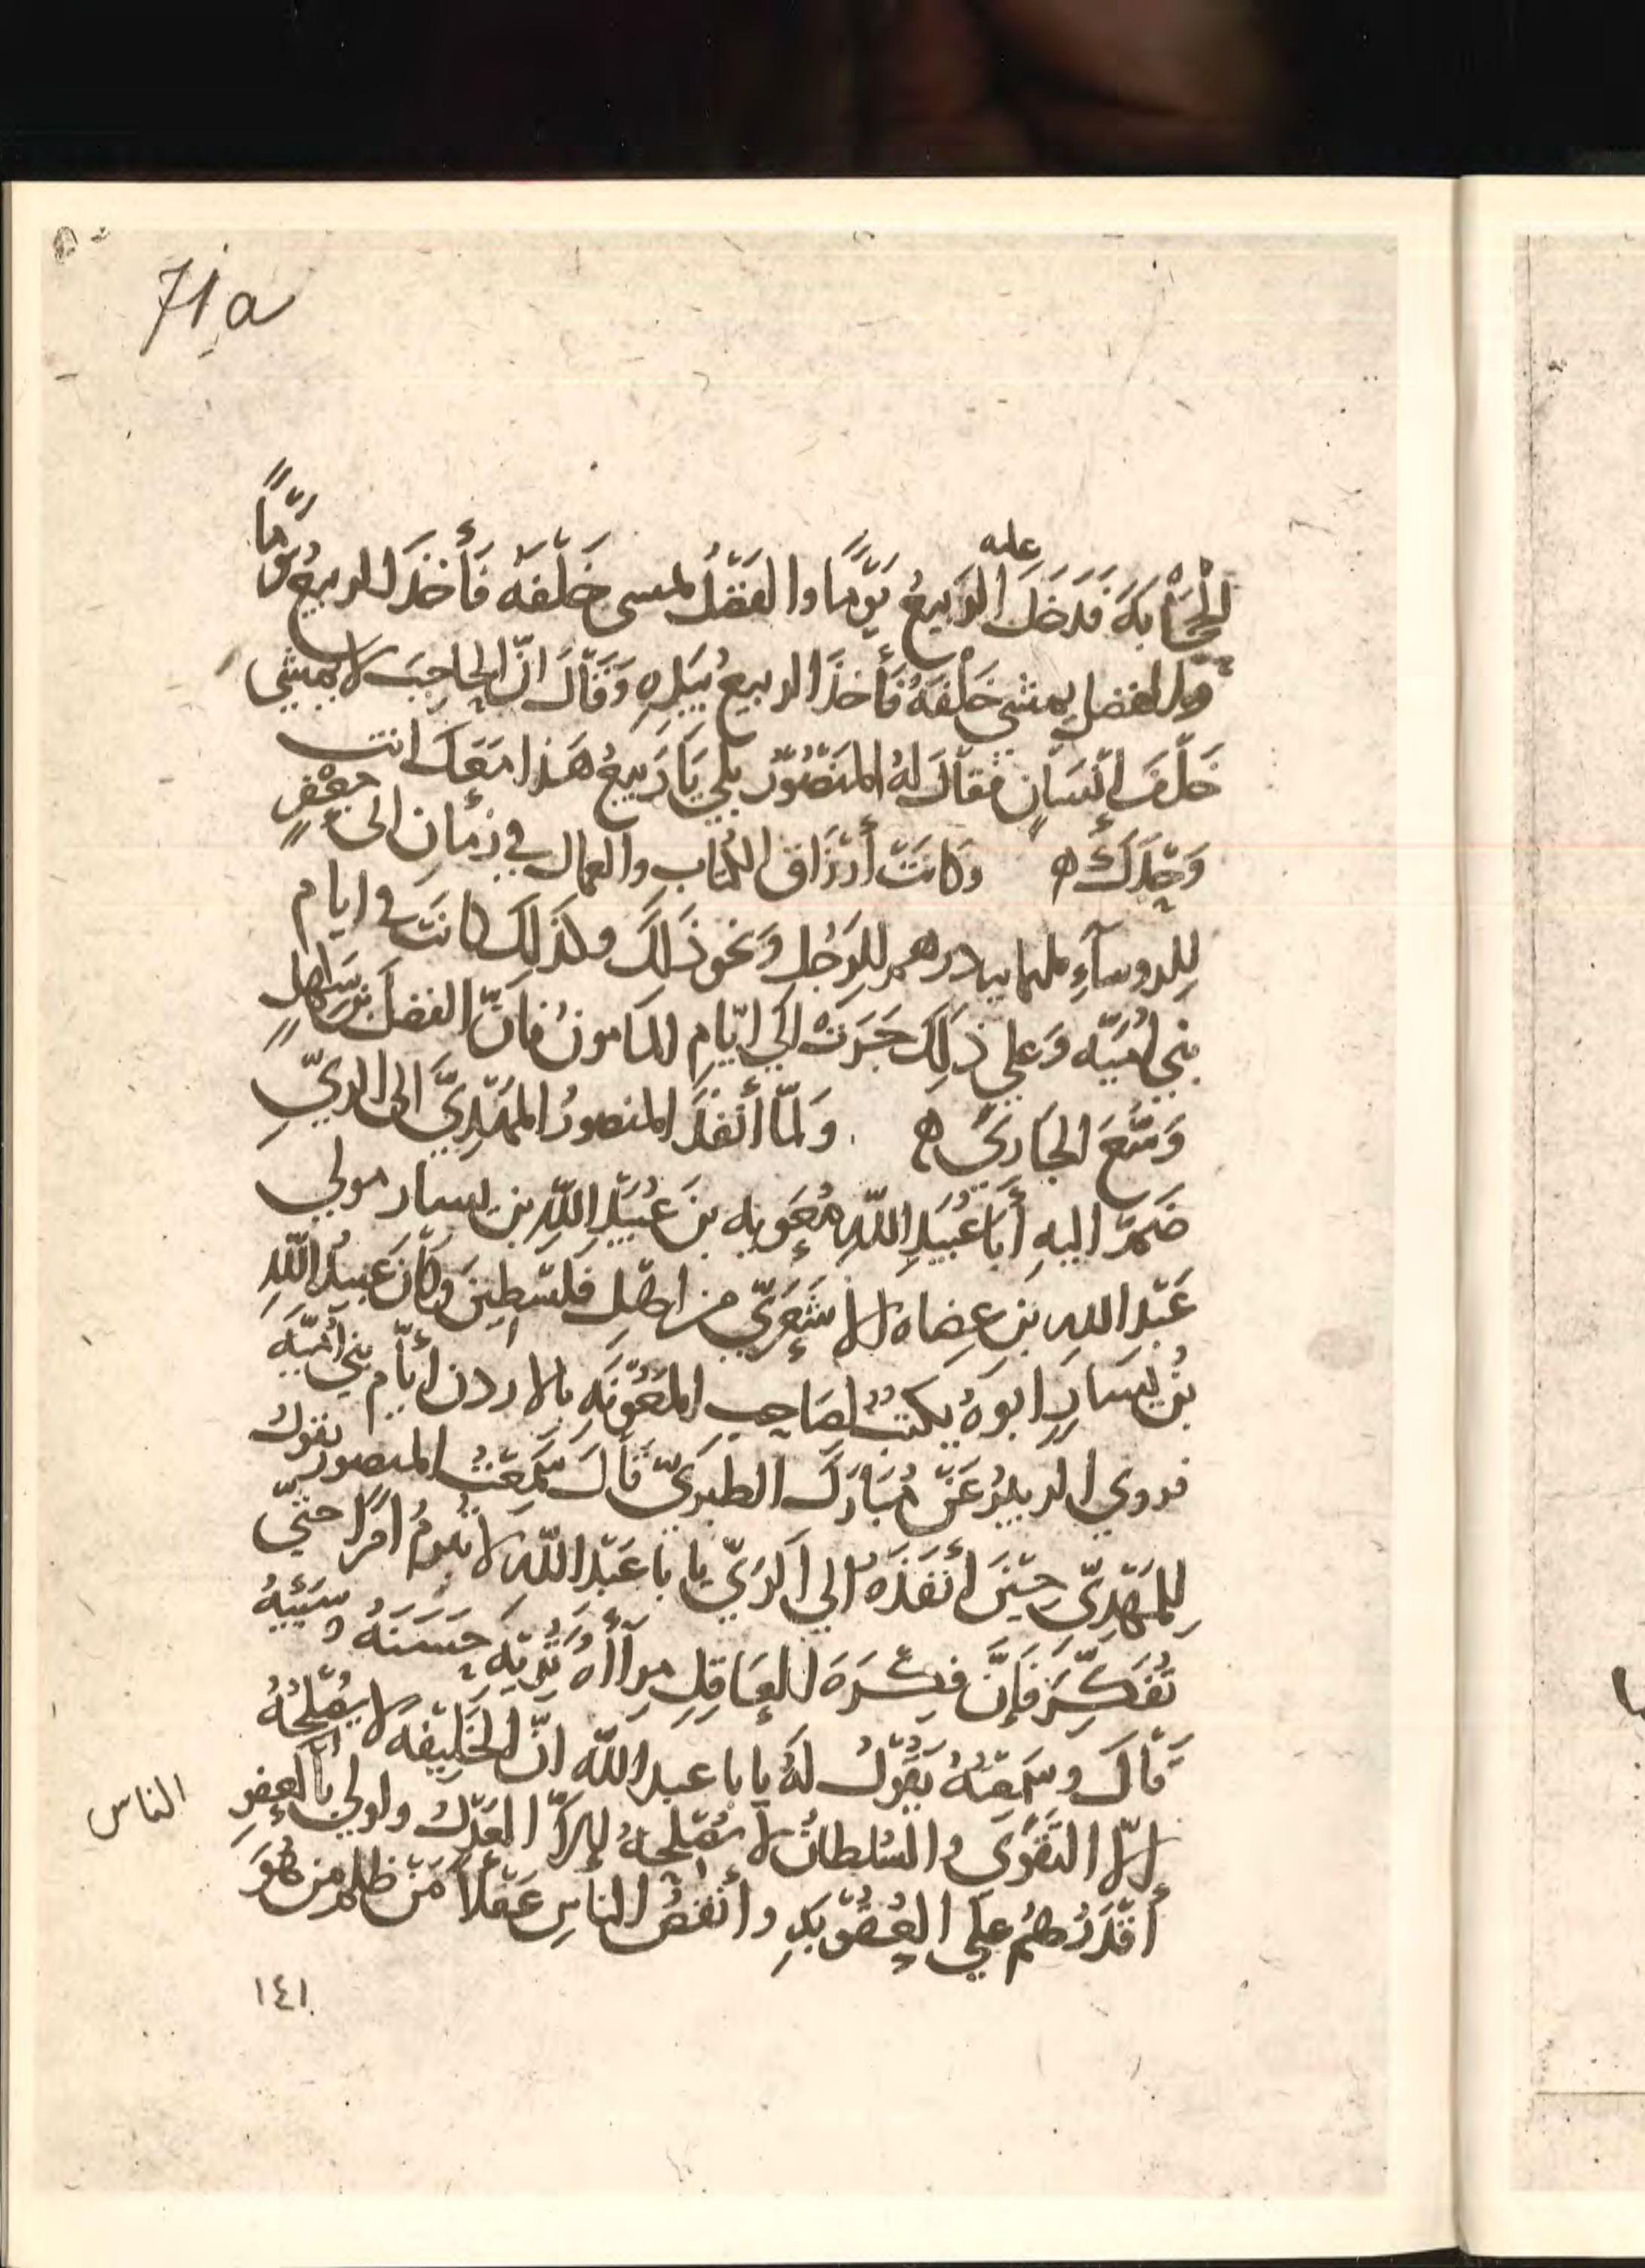 71a
عليه
الحِجَابَةَ فَدَخَلَ الرَبيعُ يَوْمًا والفَضْلُ يمسى خَلْفَهُ فَأَخَذَ الربيعُ يَوْمًا
والفضل يمشي خَلْفَهُ فَأَخَذَ الربيعُ بِيَدِهِ وَقَالَ انّ الحاجِبَ لا يمشي
خَلْفَ إنْسَانٍ فقالَ لهُ المنصُورُ بلي يَا رَبيعُ هَذا مَعَكَ انت
وَحْدَكَ ه وكانَتْ أَرْزَاق الكُتابِ والعمال في زمَانِ ابى جعْفَرٍ
لِلروسآءِ ثلثمايه درهم للرَجُلِ وَنحو ذَلِكَ وكذَلِكَ كانَت في ايام
بني اُمَيّه وَعلي ذَلِكَ جَرَتْ الَي ايّامِ المامون فانّ الفضلَ بنَ سَهْلٍ
وَسَّعَ الجَارِيَ ه ولَمّا أَنْفَذَ المنصورُ المهْدِيَّ الى الريِّ
ضَمَّ اليهِ أبَا عُبَيْدِ اللّهِ مُعَويه بنَ عُبَيْدِ اللّهِ بن يسار مولي
عَبْدِ اللهِ بن عِضاه الأشْعَرِيّ من اهْلِ فلَسْطِينَ وكَانَ عُبيدُ اللّهِ
بْنُ يَسَارٍ ابوهُ يكتبُ لصَاحِبِ المعُونَةِ بالاردن أيّام بني أُمَيّه
فروي الربيعُ عَنْ مُبَارَكٍ الطبريّ قَالَ سَمِعْتُ المنصور يقول
لِلمَهْدِيّ حِيْنَ أَنْفَذَهُ الي الرَيّ يا با عَبْدِ اللّه لا تُبرِمْ امرًا حتّي
تُفَكِّرَ فَإنَّ فِكْرَةَ العَاقِلِ مِرْآاه تُرِيْهِ حَسَنَهُ وسَيِّئَهُ
قَالَ وسَمِعْتُهُ يَقُولُ لَهُ يا با عبد اللّه انّ الخَلِيْفَه لا يُصْلِحُهُ
إلاّ التَقْوَى والسُلطانُ لا يُصْلِحهُ إلاّ العَدْل واولي بالعفوِ
الناس
أقْدَرُهُمْ عَلَى العُقُوْبَةِ وأنْقَصُ الناسِ عَقْلاً مَنْ ظلم من هُوَ
١٤١